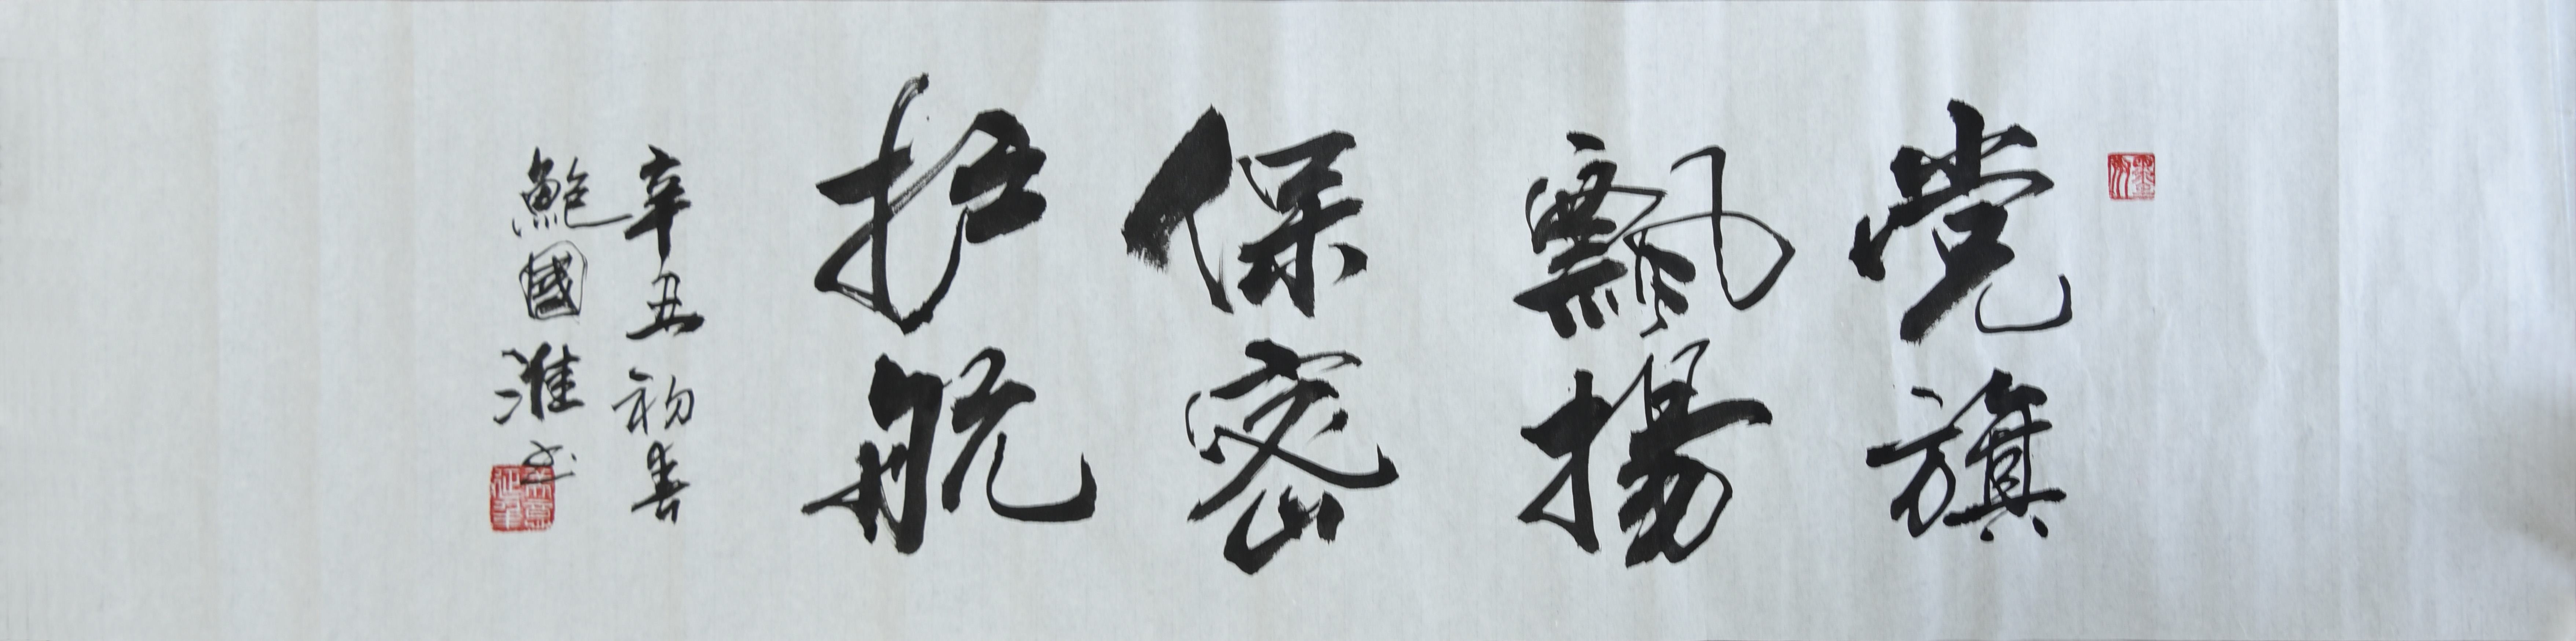 党旗
飘揚
保密
护航
辛丑初春
鲍國淮书